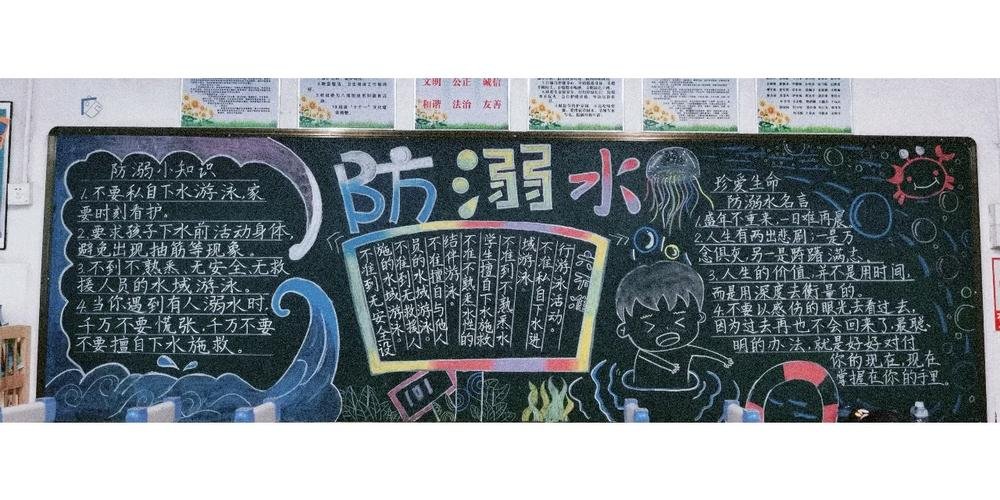 文明 公正 诚信
和谐 法治 友善
防溺水
防溺小知识
1.不要私自下水游泳,家
要时刻看护。
2.要求孩子下水前活动身体,
避免出现抽筋等现象。
3.不到不熟悉、无安全、无救
援人员的水域游泳。
4.当你遇到有人溺水时,
千万不要慌张,千万不要
不要擅自下水施救。
六不准
不准到无安全设
施的水域游泳。
不准到无救援人
员的水域游泳。
不准擅自与他人
结伴游泳。
不准不熟悉水性的
学生擅自下水施救
不准到不熟悉水
域游泳。
不准私自下水进
行游泳活动。
珍爱生命
防溺水名言
1.盛年不重来,一日难再晨
2.人生有两出悲剧:一是万
念俱灰,另一是踌躇满志。
3.人生的价值,并不是用时间,
而是用深度去衡量的。
4.不要以感伤的眼光去看过去,
因为过去再也不会回来了,最聪
明的办法,就是好好对付
你的现在,现在
掌握在你的手里。